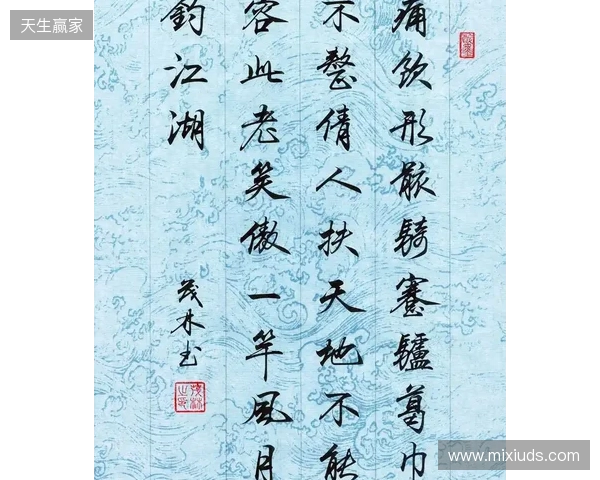 天生赢家
痛饮形骸騎蹇驢葛巾
不整倩人扶天地不能
容此老笑傲一竿風月
釣江湖
茂林书
www.mixiuds.com